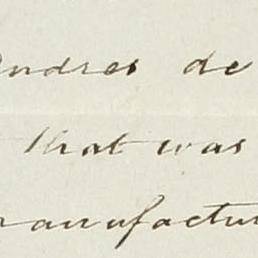 Andres de
that was
manufactur